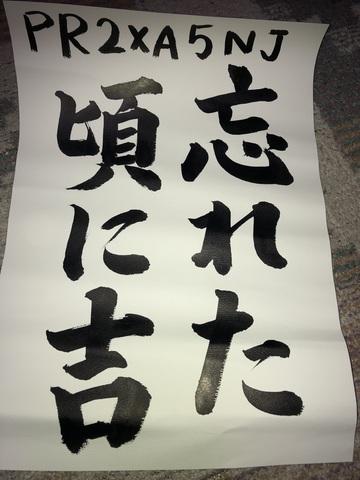 PR2XA5NJ
忘れた
頃に吉